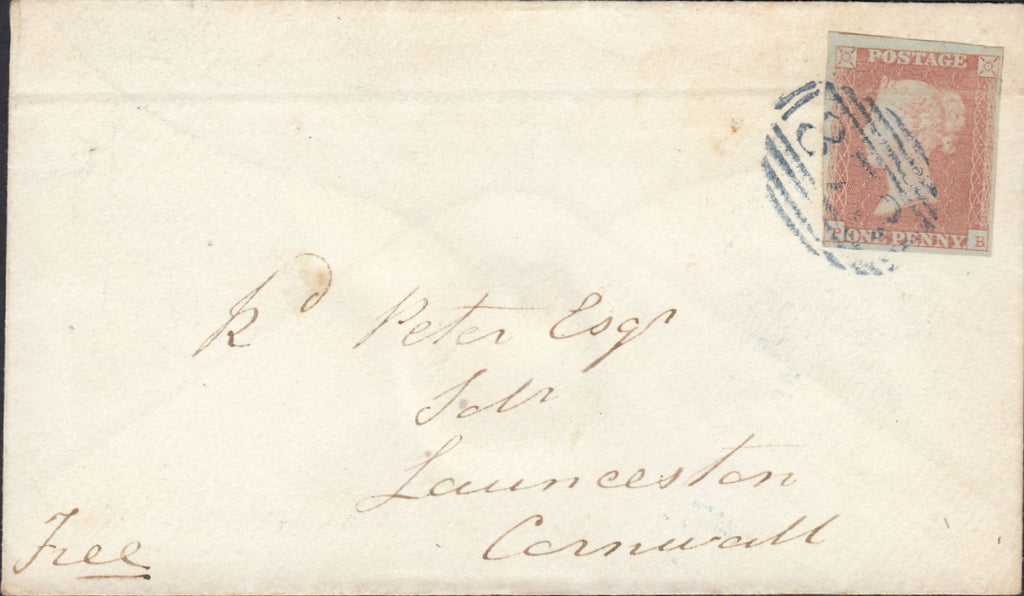 POSTAGE
P ONE PENNY B
Rd Peter Esqr
Solr
Launceston
Cornwall
Free